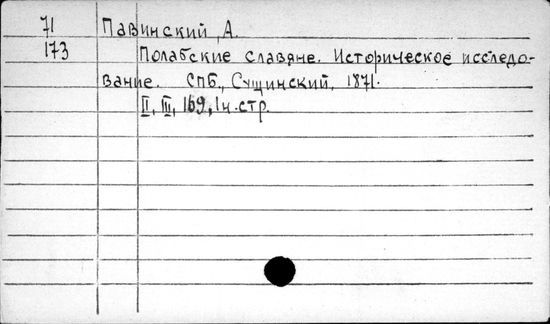 71 Павинский, А.
173 Полабские славяне. Историческое исследо-
вание. СПб., Сущинский, 1871.
II, III, 169, 1н.стр.